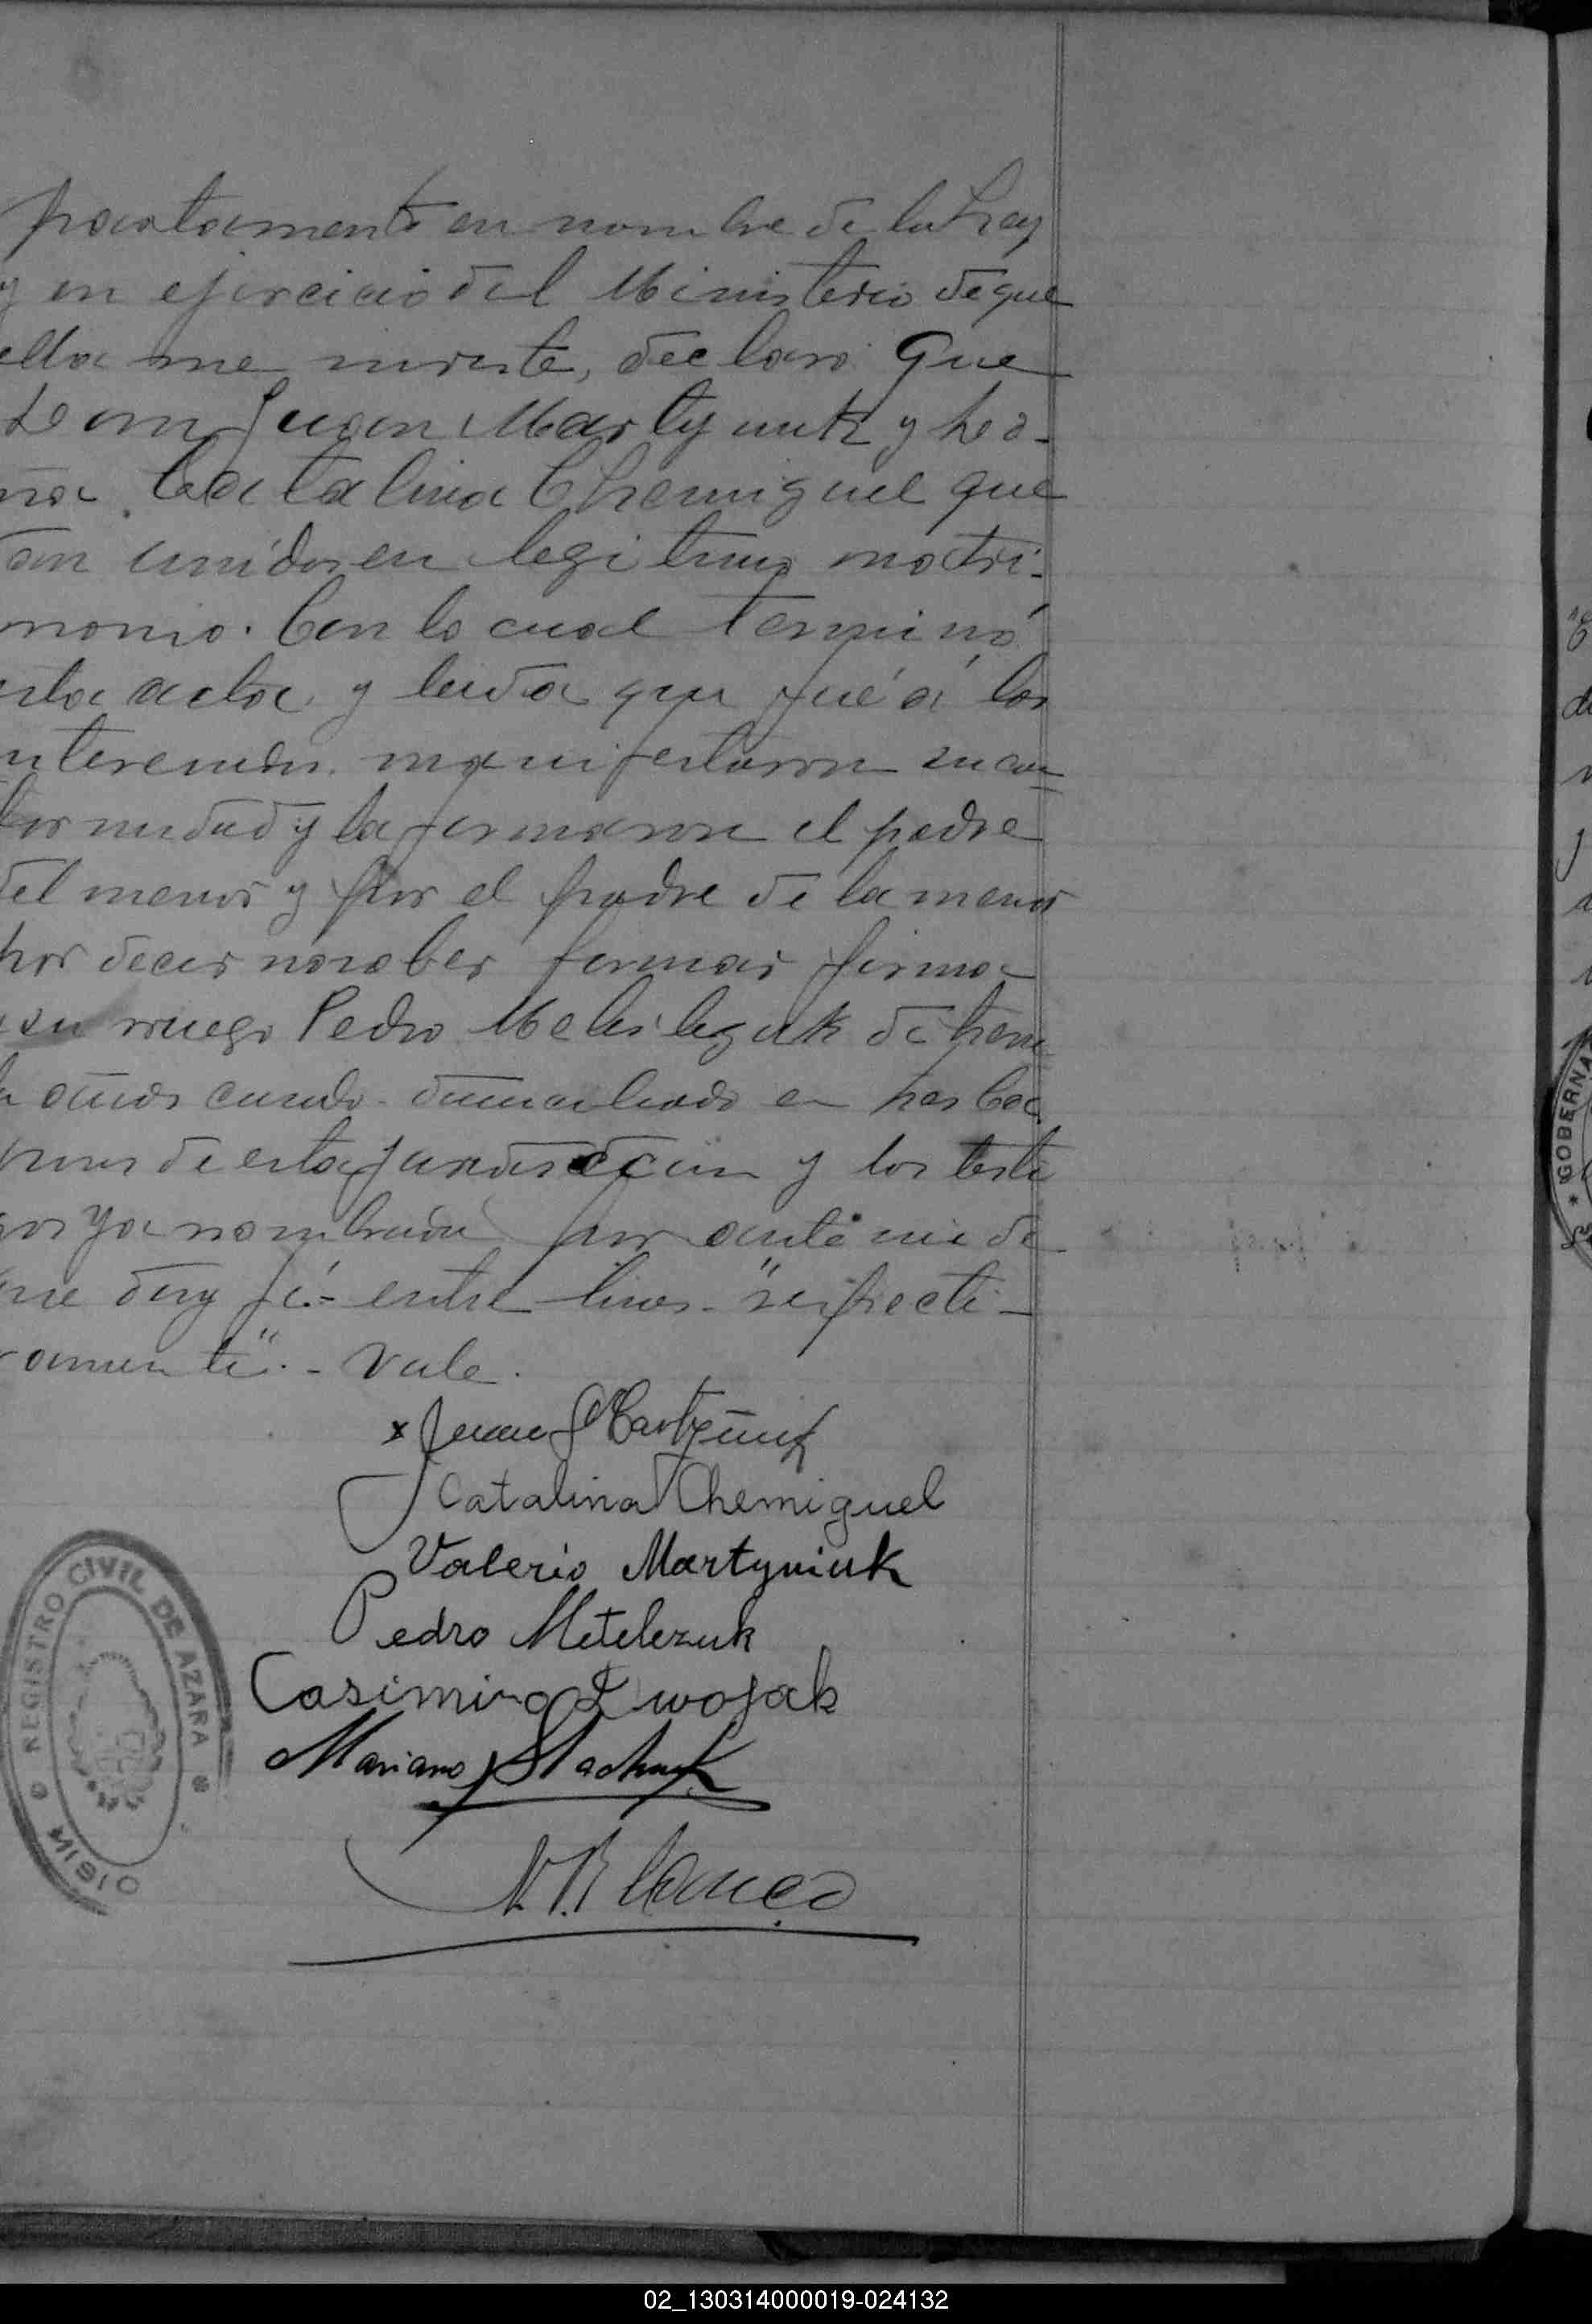 partamento en nombre de la Ley
y en ejercicio del Ministerio de que
ella me inviste, declaro que
Don Juan Martyniuk y Do-
ña Catalina Chemiguel que
dan unidos en legitimo matri-
monio. Con lo cual terminó
esta acta, y leida que fué á los
interesados manifestaron su con
formidad y la firmaron el padre
del menor y por el padre de la menor
por decir no saber firmar firma
a su ruego Pedro de trein
ta años casado domiciliado en
de esta jurisdiccion y los testi
gos ya nombrados por ante mi de
que doy fé.- entre lineas - "respecti-
vamente".- Vale.
x Juan Martyniuk
Catalina Chemiguel
Valerio Martyniuk
Pedro Metelezuk
Casimiro Dwojak
Mariano Stachuk
N. Blanco
REGISTRO CIVIL DE AZARA
MISIO
GOBERNA
02_130314000019-024132